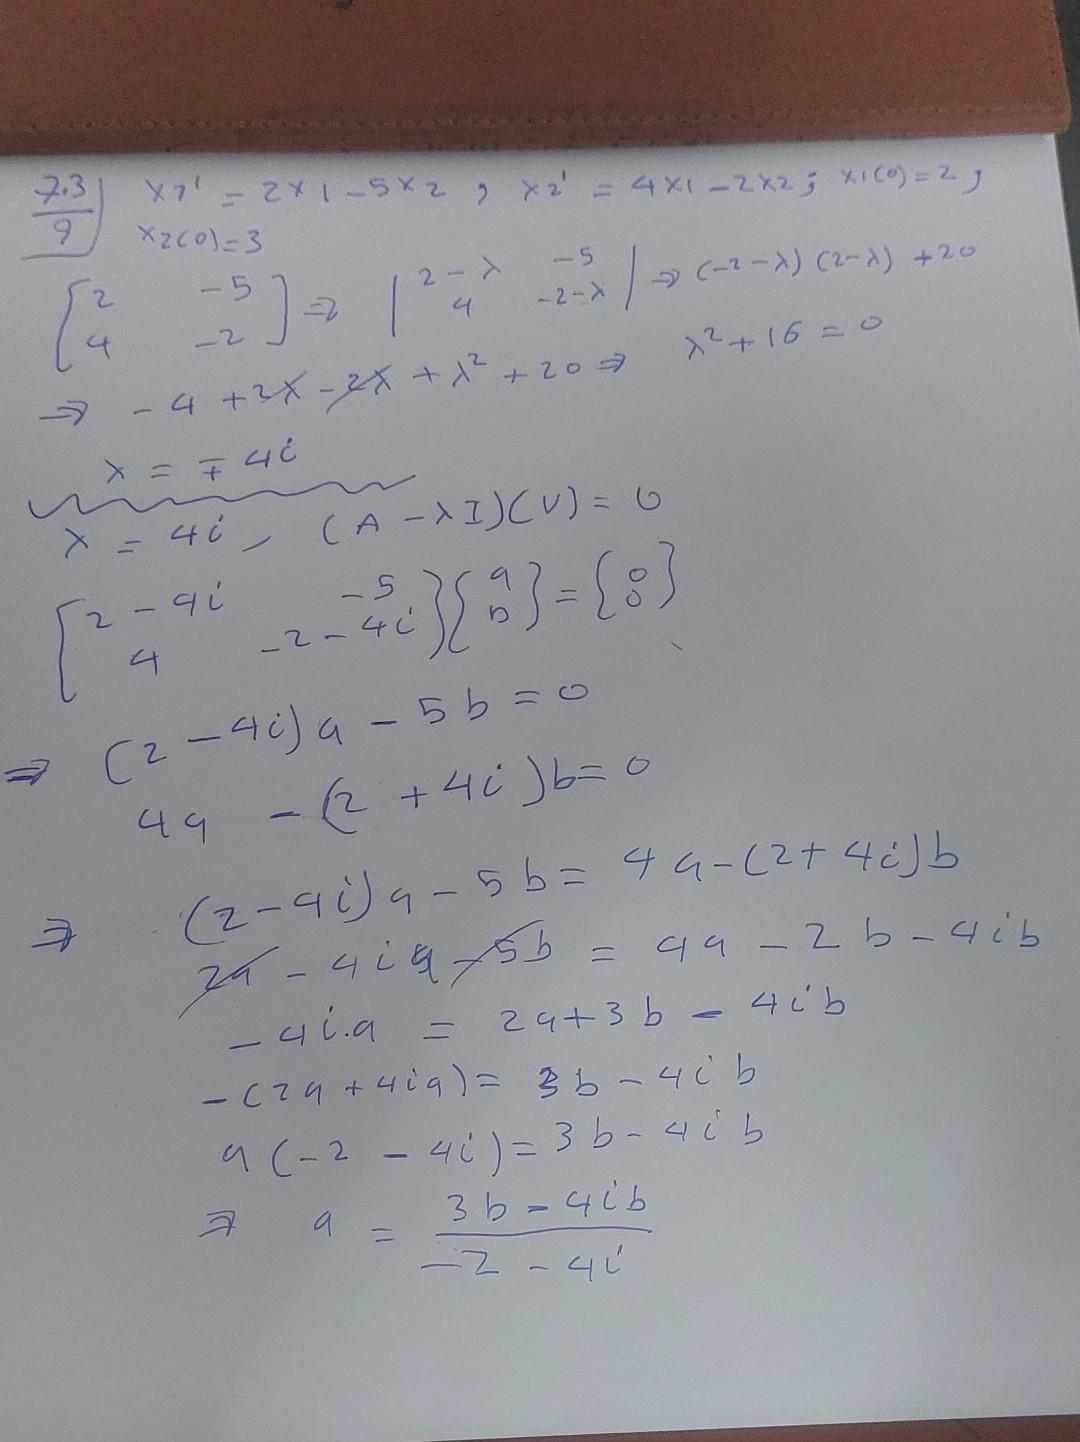 7.3/9) x1' = 2x1 - 5x2 , x2' = 4x1 - 2x2 ; x1(0) = 2 ,
x2(0) = 3
[2 -5; 4 -2] ⇒ |2-λ -5; 4 -2-λ| ⇒ (-2-λ) (2-λ) + 20
⇒ -4 + 2λ - 2λ + λ² + 20 ⇒ λ² + 16 = 0
λ = ∓ 4i
λ = 4i , (A - λI)(V) = 0
[2-4i -5; 4 -2-4i] {a; b} = {0; 0}
⇒ (2 - 4i) a - 5b = 0
4a - (2 + 4i) b = 0
⇒ (2-4i) a - 5b = 4a - (2+4i) b
2a - 4ia - 5b = 4a - 2b - 4ib
-4i.a = 2a + 3b - 4ib
-(2a + 4ia) = 3b - 4ib
a (-2 - 4i) = 3b - 4ib
⇒ a = (3b - 4ib)/(-2 - 4i)